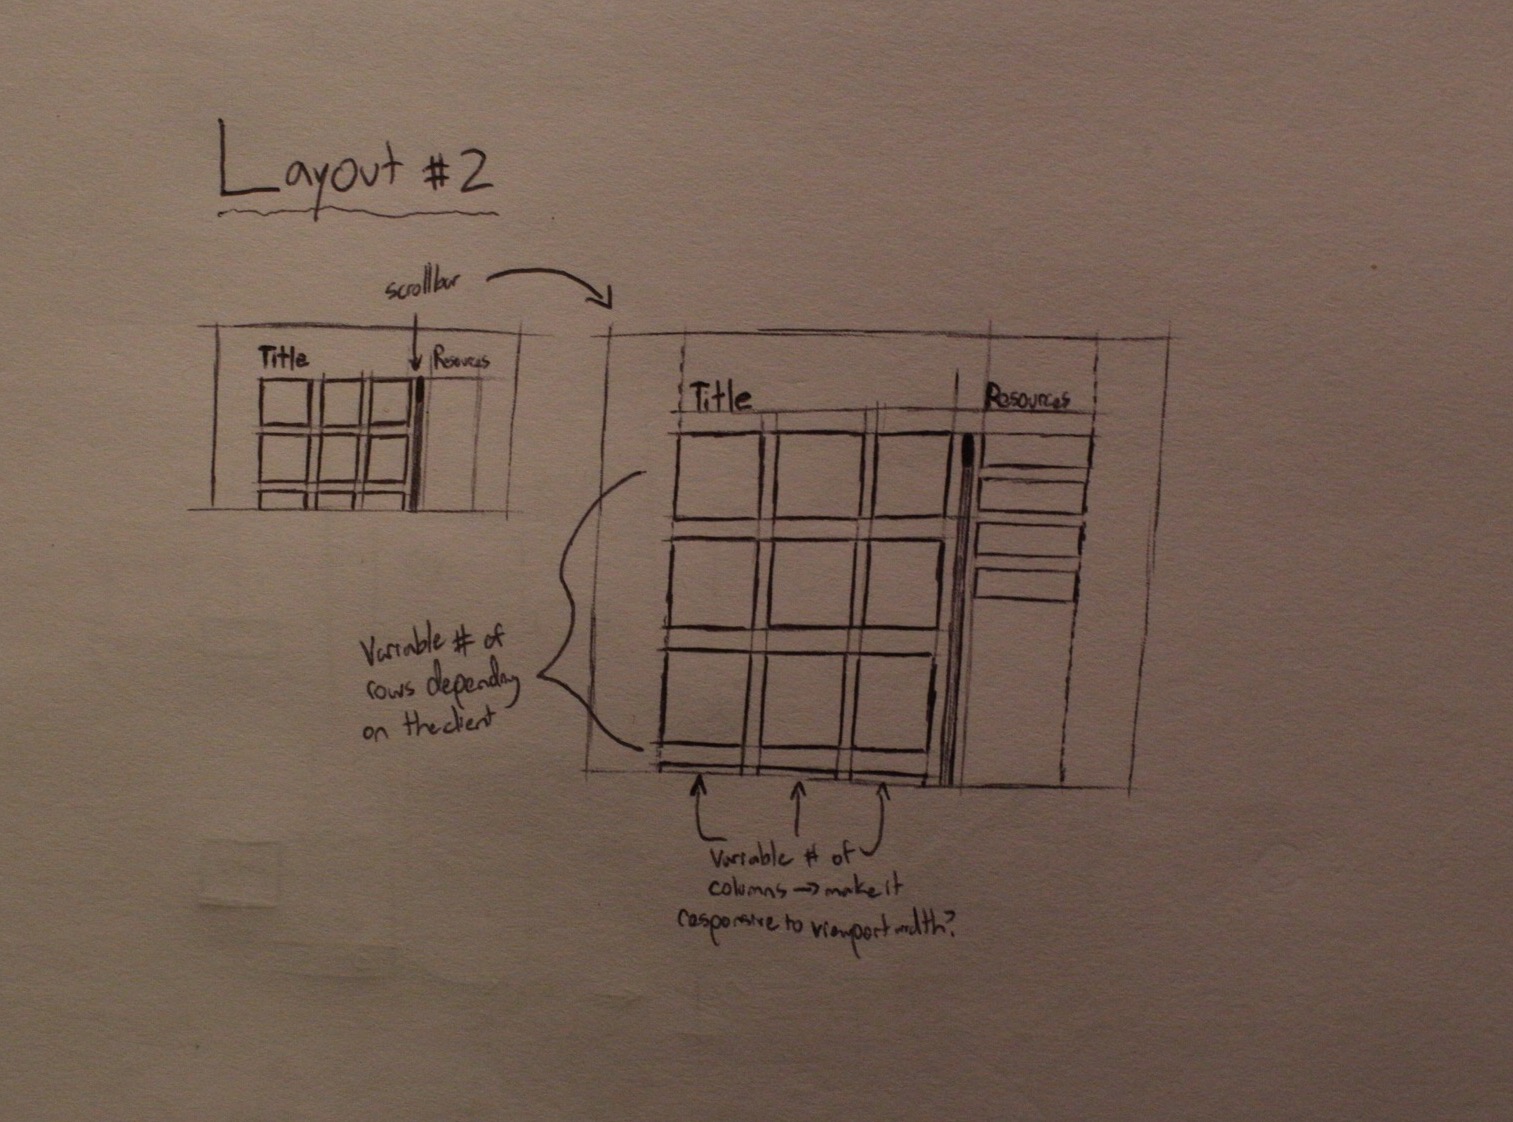 Layout #2
scrollbar
Title
Resources
Title
Resources
Variable # of
rows depending
on the client
Variable # of
columns → make it
responsive to viewport width?